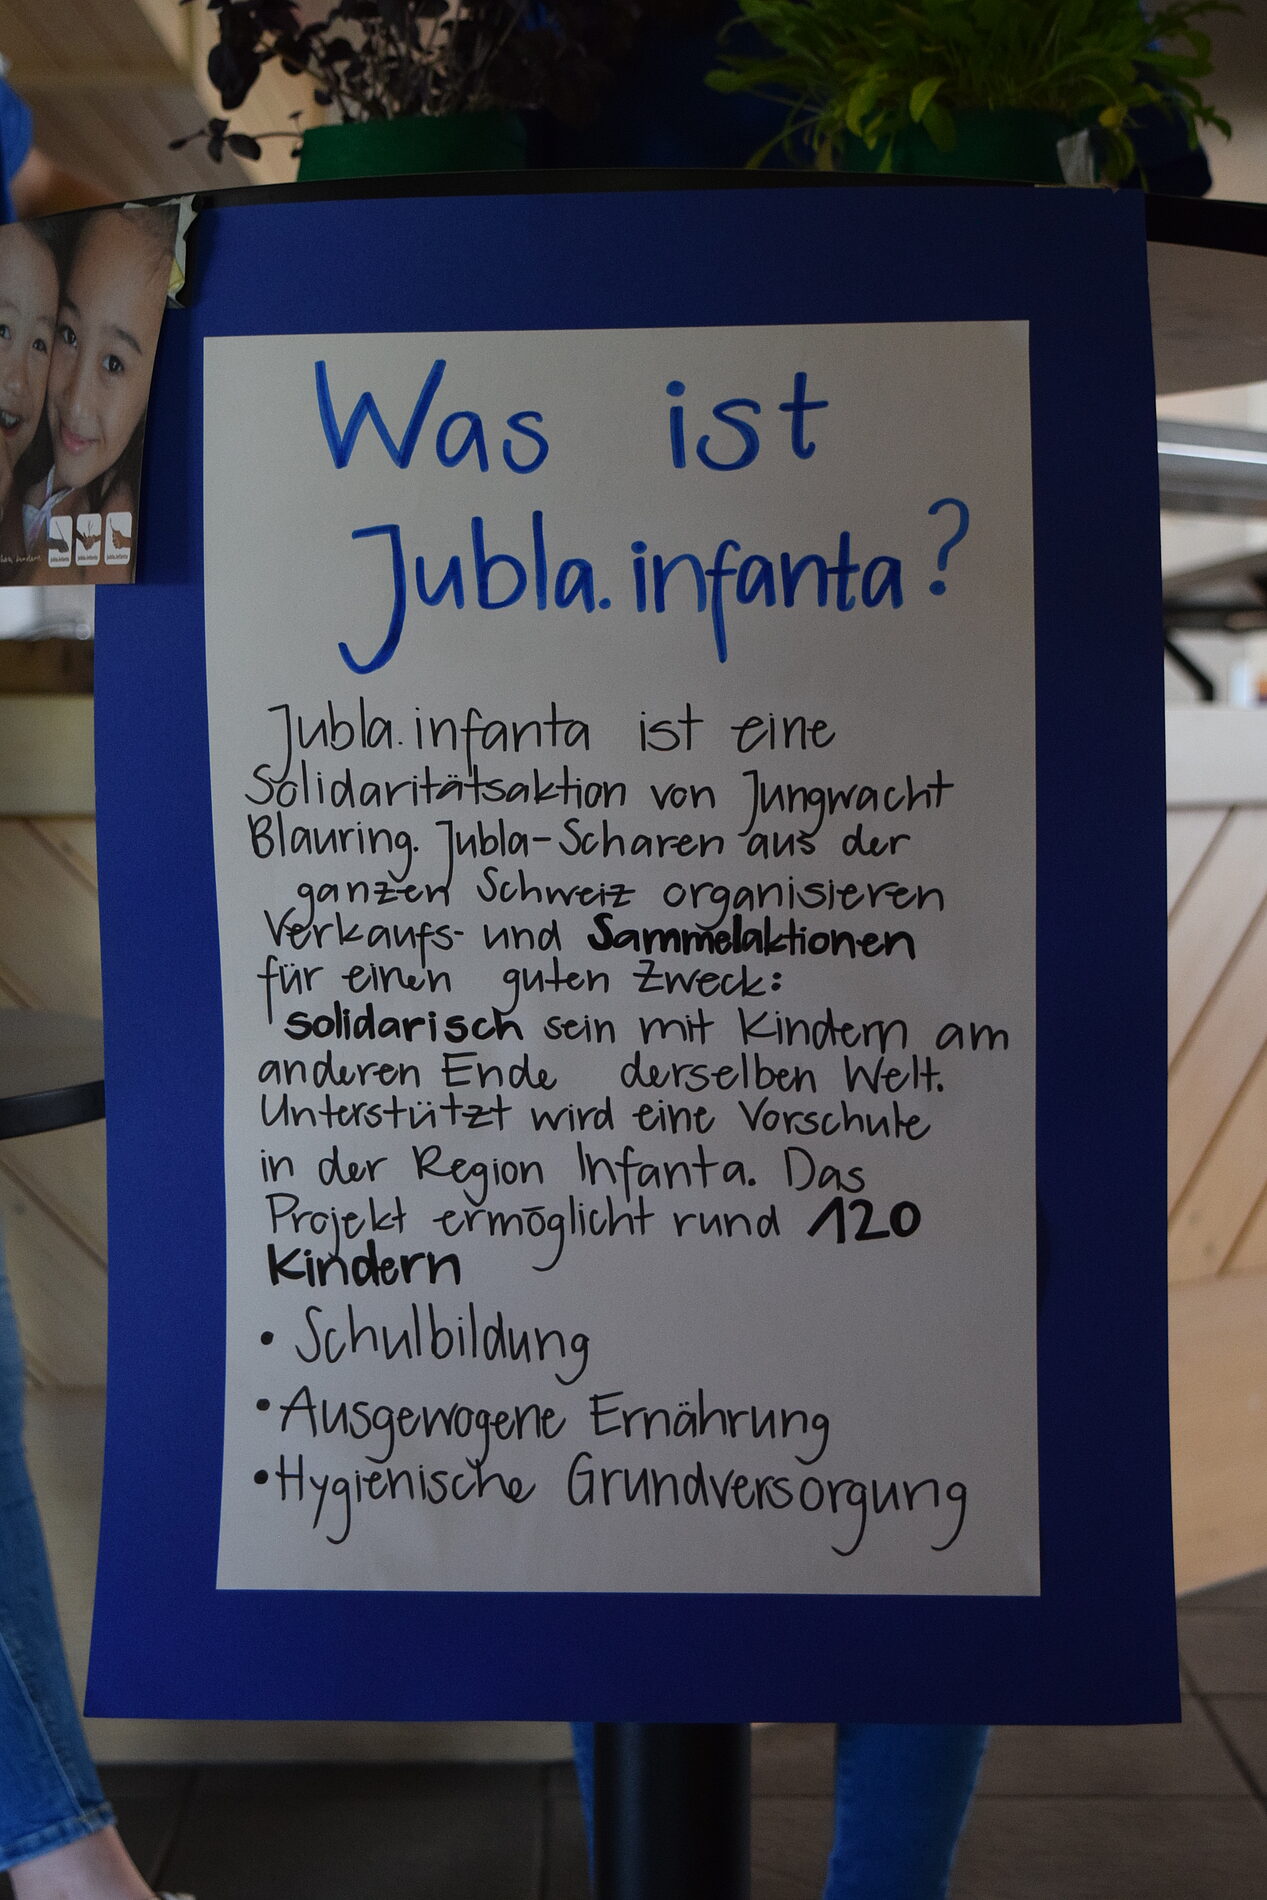 Was ist
Jubla.infanta?
Jubla.infanta ist eine
Solidaritätsaktion von Jungwacht
Blauring. Jubla-Scharen aus der
ganzen Schweiz organisieren
Verkaufs- und Sammelaktionen
für einen guten Zweck:
solidarisch sein mit Kindern am
anderen Ende derselben Welt.
Unterstützt wird eine Vorschule
in der Region Infanta. Das
Projekt ermöglicht rund 120
Kindern
• Schulbildung
• Ausgewogene Ernährung
• Hygienische Grundversorgung